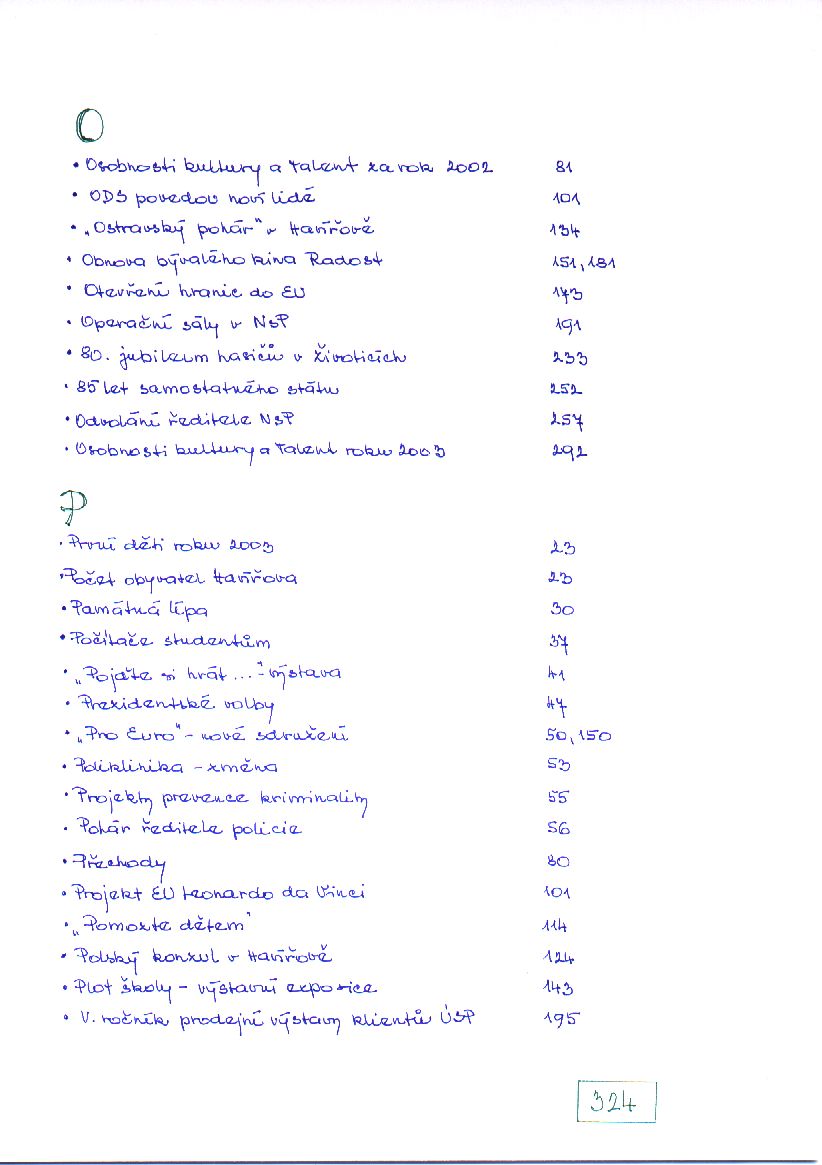 O
• Osobnosti kultury a Talent za rok 2002 81
• ODS povedou noví lidé 101
• „Ostravský pohár" v Havířově 134
• Obnova bývalého kina Radost 151, 181
• Otevření hranic do EU 173
• Operační sály v NsP 191
• 80. jubileum hasičů v Životicích 233
• 85 let samostatného státu 252
• Odvolání ředitele NsP 257
• Osobnosti kultury a Talent roku 2003 292
P
• První děti roku 2003 23
• Počet obyvatel Havířova 23
• Památná lípa 30
• Počítače studentům 37
• „Pojďte si hrát ..." - výstava 41
• Prezidentské volby 47
• „Pro Euro" - nové sdružení 50, 150
• Poliklinika - změna 53
• Projekty prevence kriminality 55
• Pohár ředitele policie 56
• Přechody 80
• Projekt EU Leonardo da Vinci 101
• „Pomozte dětem" 114
• Polský konzul v Havířově 124
• Plot školy - výstavní expozice 143
• V. ročník prodejní výstavy klientů ÚSP 195
324